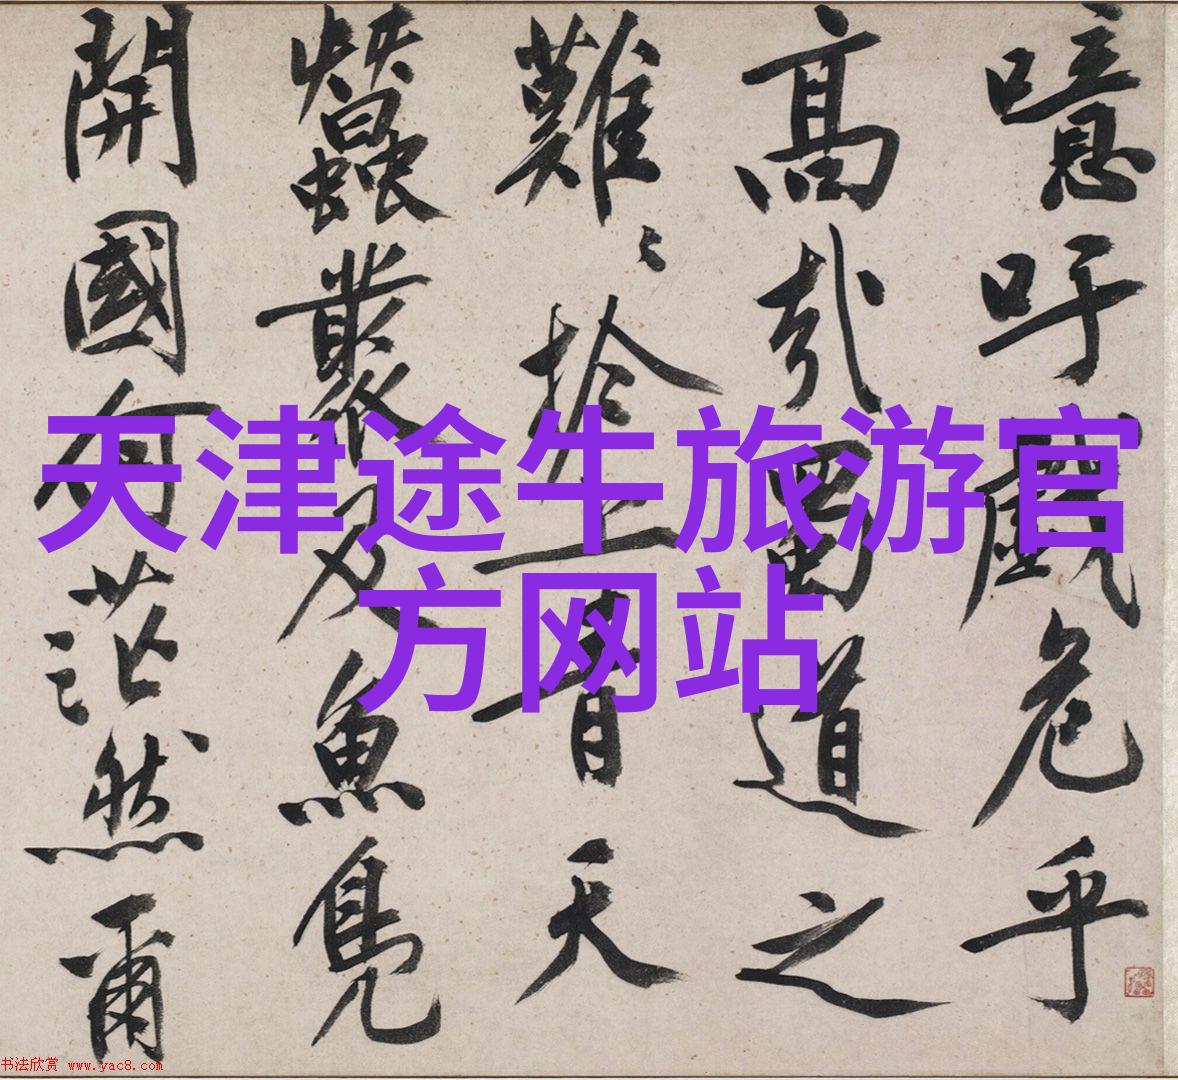 噫吁戲危乎
高哉蜀道之
難〻扵上青天
蠶叢及魚鳧
開國何茫然爾
天津途牛旅游官
方网站
书法欣赏 www.yac8.com